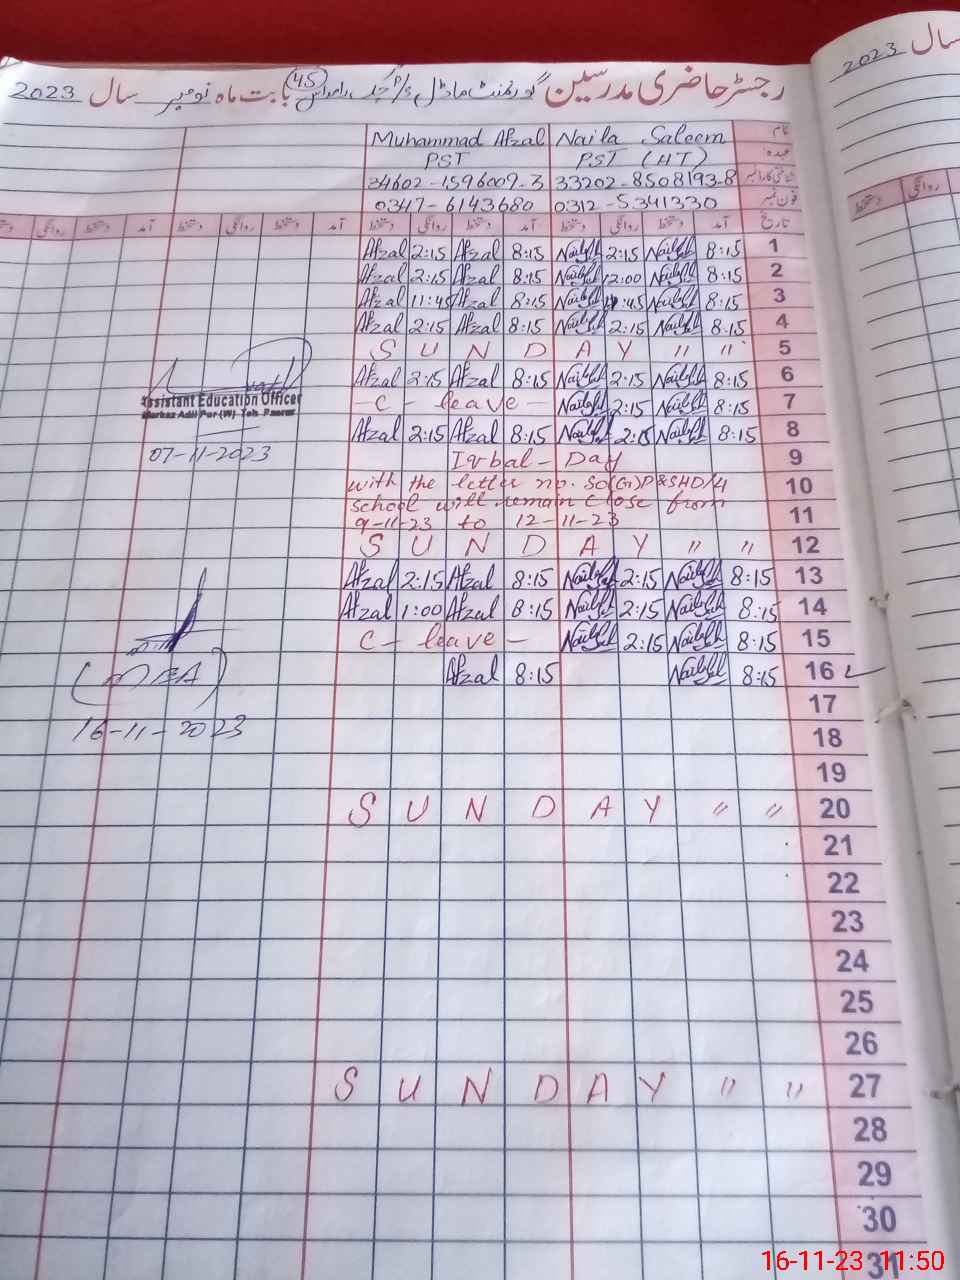 رجسٹر حاضری مدرسین گورنمنٹ ماڈل P/S چک (45) بابت ماہ نومبر سال 2023
نام Naila Saleem Muhammad Afzal
عہدہ PST (HT) PST
شناختی کارڈ نمبر 33202-8508193-8 34602-1596009-3
فون نمبر 0312-5341330 0347-6143680
تاریخ آمد دستخط روانگی دستخط آمد دستخط روانگی دستخط آمد دستخط روانگی دستخط آمد دستخط روانگی
Afzal 2:15 Afzal 8:15 2:15 8:15 1
Afzal 2:15 Afzal 8:15 12:00 8:15 2
Afzal 11:45 Afzal 8:15 8:15 3
Afzal 2:15 Afzal 8:15 2:15 8:15 4
SUNDAY " " 5
Afzal 2:15 Afzal 8:15 2:15 8:15 6
-C- leave - 2:15 8:15 7
Afzal 2:15 Afzal 8:15 2:15 8:15 8
Assistant Education Officer
Markaz Adil Pur (W) Teh. Pasrur
07-11-2023
Iqbal - Day 9
with the letter no. SO(G)D&SHD/4 10
school will remain close from
9-11-23 to 12-11-23 11
SUNDAY " " 12
Afzal 2:15 Afzal 8:15 2:15 8:15 13
Afzal 1:00 Afzal 8:15 2:15 8:15 14
C- leave - 2:15 8:15 15
Afzal 8:15 8:15 16
(MEA)
16-11-2023
17
18
19
SUNDAY " " 20
21
22
23
24
25
26
SUNDAY " " 27
28
29
30
31
2023 سال
دستخط روانگی
16-11-23 11:50